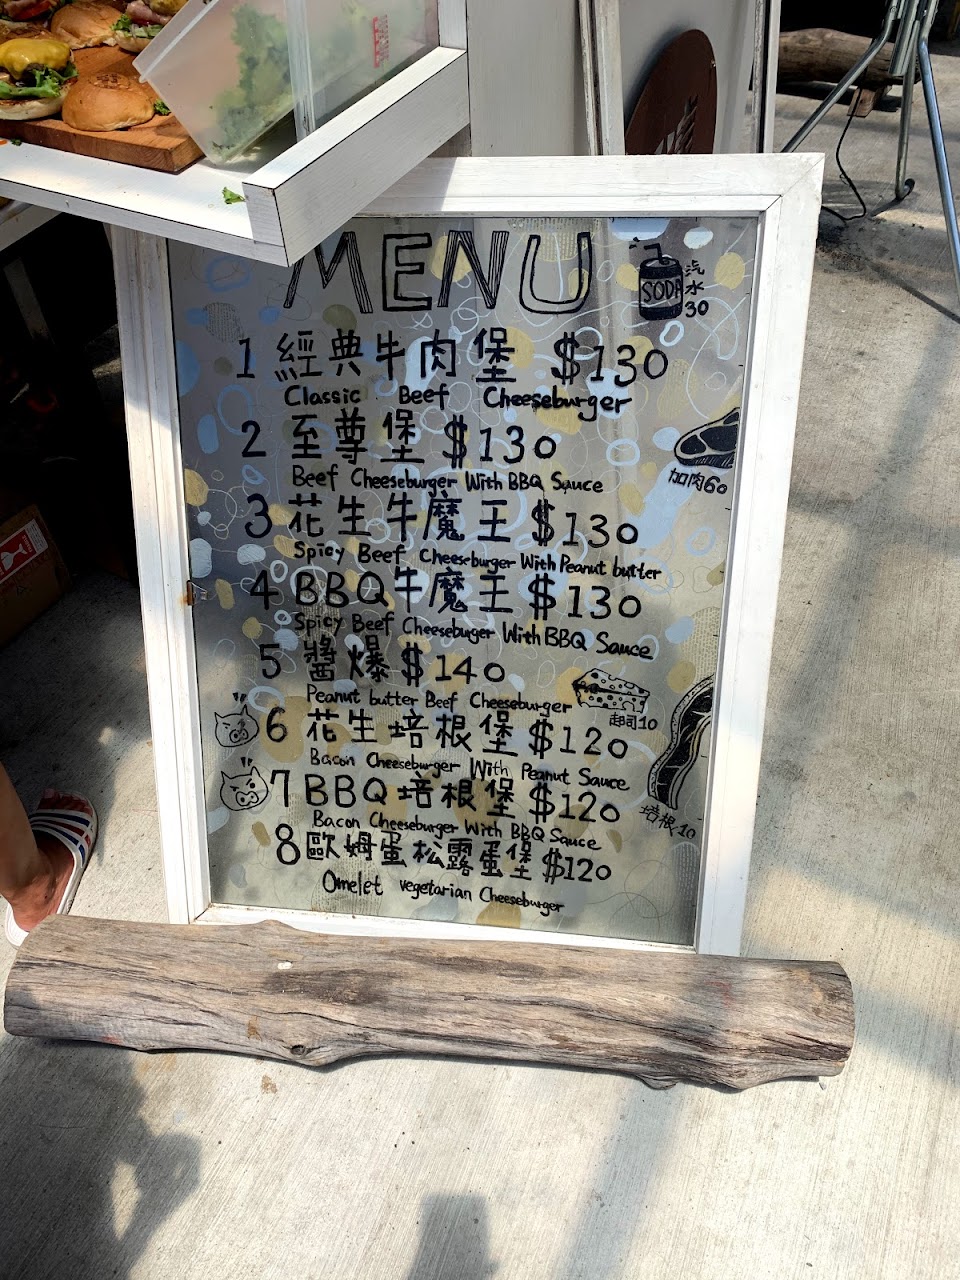 MENU
SODA
汽水
30
1 經典牛肉堡 $130
Classic Beef Cheeseburger
2 至尊堡 $130
Beef Cheeseburger With BBQ Sauce
加肉60
3 花生牛魔王 $130
Spicy Beef Cheeseburger With Peanut butter
4 BBQ牛魔王 $130
Spicy Beef Cheeseburger With BBQ Sauce
5 醬爆 $140
Peanut butter Beef Cheeseburger
起司10
6 花生培根堡 $120
Bacon Cheeseburger With Peanut Sauce
7 BBQ培根堡 $120
Bacon Cheeseburger With BBQ Sauce
培根10
8 歐姆蛋松露蛋堡 $120
Omelet vegetarian Cheeseburger